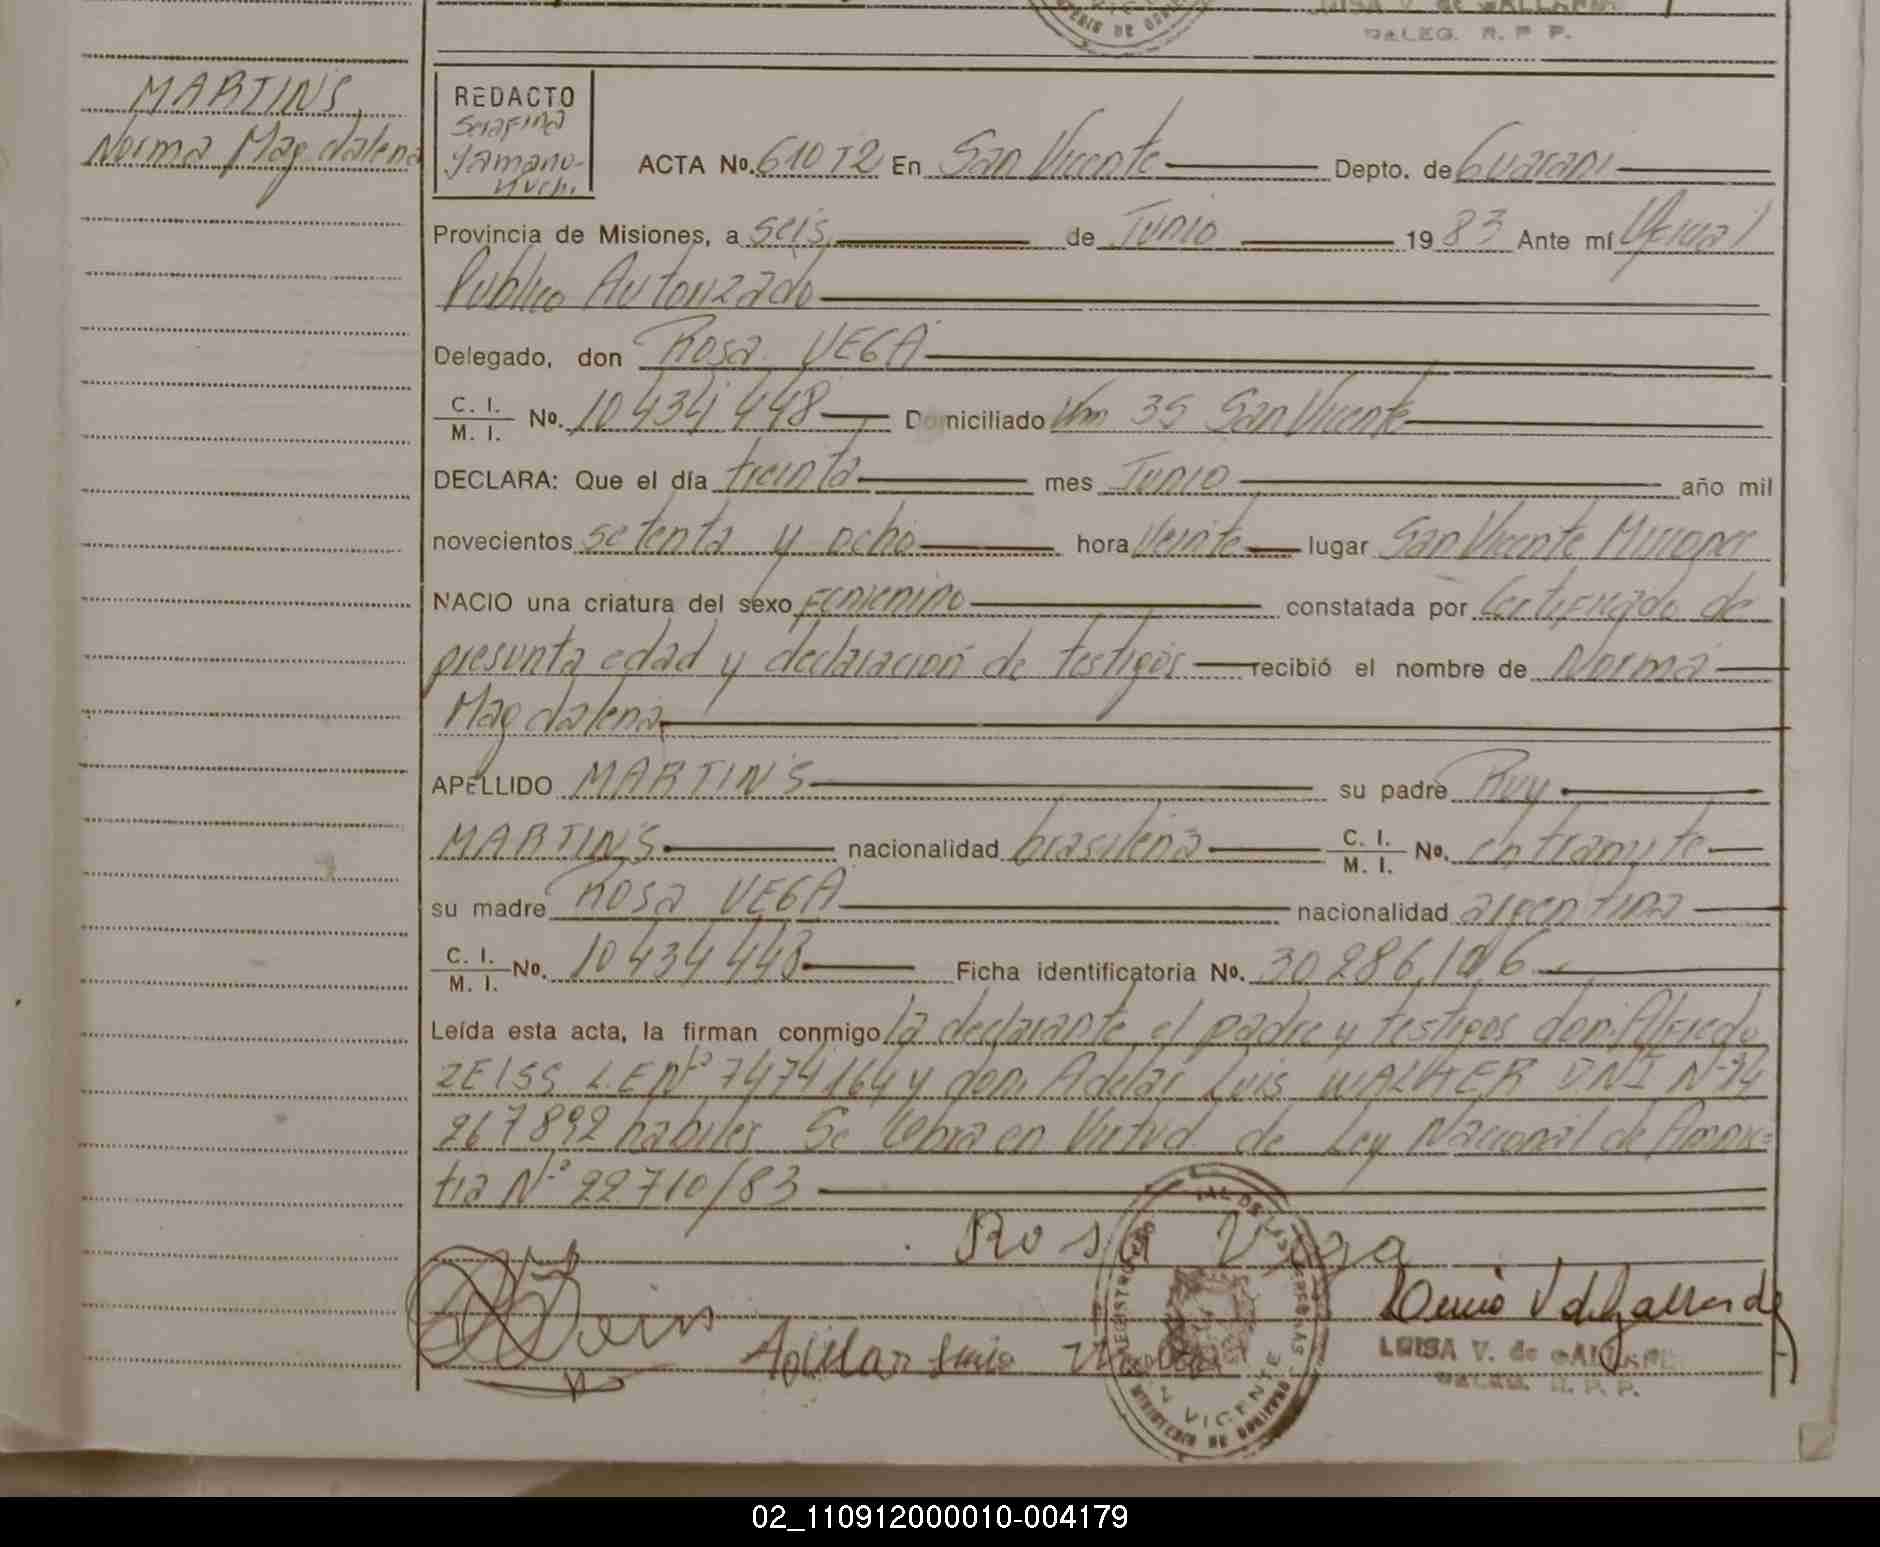 LUISA V. de GALLARDO
DELEG. R. P. P.
MARTINS,
Norma Magdalena
REDACTO
Serafina
Yamano-
uchi
ACTA No. 610 T2 En San Vicente Depto. de Guarani
Provincia de Misiones, a seis de Junio 1983 Ante mí Oficial
Publico Autorizado
Delegado, don Rosa VEGA
C. I.
M. I. No. 10 434 448 Domiciliado Km 35 San Vicente
DECLARA: Que el día treinta mes Junio año mil
novecientos setenta y ocho hora veinte lugar San Vicente Misiones
NACIO una criatura del sexo Femenino constatada por Certificado de
presunta edad y declaración de testigos recibió el nombre de Norma
Magdalena
APELLIDO MARTINS su padre Ruy
MARTINS nacionalidad brasileña C. I.
M. I. No. en tramite
su madre Rosa VEGA nacionalidad argentina
C. I.
M. I. No. 10 434 448 Ficha identificatoria No. 30 286 106
Leída esta acta, la firman conmigo la declarante, el padre y testigos don: Alfredo
ZEISS L.E Nº 7474164 y don Adelar Luis WALKER DNI Nº 14
267892 habiles Se labra en Virtud de Ley Nacional de Amnis-
tia Nº 22710/83
Rosa Vega
Adelar Luis
LUISA V. de GALLARDO
DELEG. R. P. P.
SAN VICENTE
MINISTERIO DE GOBIERNO
02_110912000010-004179